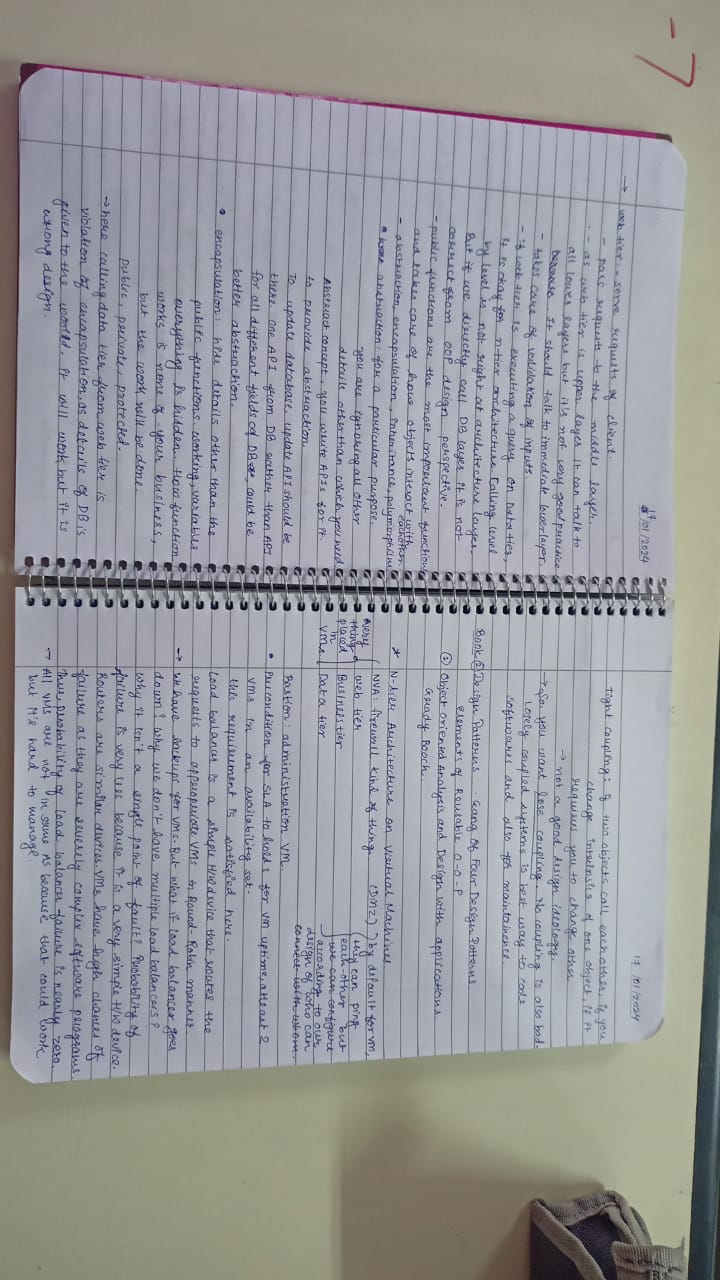 17/01/2024
→ web tier :- serve requests of client.
- pass requests to the middle layer.
- as web tier is upper layer it can talk to
all lower layers but it's not very good practice
It should talk to immediate lower layer.
- takes care of validation of inputs.
- if web tier is executing a query on Data tier,
It is okay for n-tier architecture. Calling level
by level is not right at architecture layer.
But if we directly call DB layer it is not
correct from OOP design perspective.
- public functions are the most important functions
and takes care of how objects interact with
each other
- abstraction, encapsulation, inheritance, polymorphism
• abstraction: for a particular purpose.
you are ignoring all other
details other than which you need
Abstract concept, you write APIs for it
to provide abstraction.
To update database, update API should be
there one API from DB rather than API
for all different fields of DB, could be
better abstraction.
• encapsulation: hide details other than the
public functions. working, variables
everything is hidden. How function
works is none of your business,
but the work will be done.
public, private, protected.
→ here calling data tier from web tier is
violation of encapsulation, as details of DB is
given to the world. It will work but it is
wrong design.
17/01/2024
Tight coupling: if two objects call each other, if you
change intrinsics of one object, it
requires you to change other
→ not a good design ideology.
→ So, you want lose coupling. No coupling is also bad.
Losely coupled systems is best way to code
softwares and also for maintainence.
Book ② Design Patterns : Gang of Four Design Patterns
Elements of Reusable O-O-P
① Object oriented Analysis and Design with applications
Grady Booch.
* N-tier Architecture on Virtual Machines
every thing placed in VMs
NVA: firewall kind of thing. (DMZ)
web tier
Business tier
Data tier
by difault for VM,
they can ping
each-other but
we can configure
according to our
design of who can
connect with whom.
Bastion: administration VM.
• Precondition for SLA to holds for VM uptime, atleast 2
VMs in an availability set.
this requirement is satisfied here.
Load balancer is a simple H/W device that routes the
requests to appropriate VMs in Round-Robin manner.
→ We have backups for VMs. But what if load balancer goes
down? Why we don't have multiple load balancers?
Why it isn't a single point of fault? Probability of
failure is very less because it is a very simple H/W device.
Routers are similar devices. VMs have high chances of
failure as they are severely complex software programs.
Thus, probability of load balancer failure is nearly zero.
→ All VMs are not in same AS because that could work
but it's hard to manage.